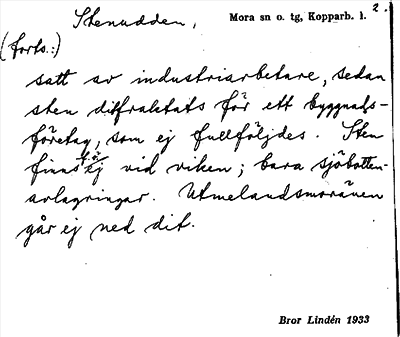 Stenudden, Mora sn o. tg, Kopparb. l. 2.
(forts.:)
satt av industriarbetare, sedan
sten ditfraktats för ett byggnads-
företag, som ej fullföljdes. Sten
finns ej vid viken; bara sjöbotten-
avlagringar. Utmelandsmoränen
går ej ned dit.
Bror Lindén 1933